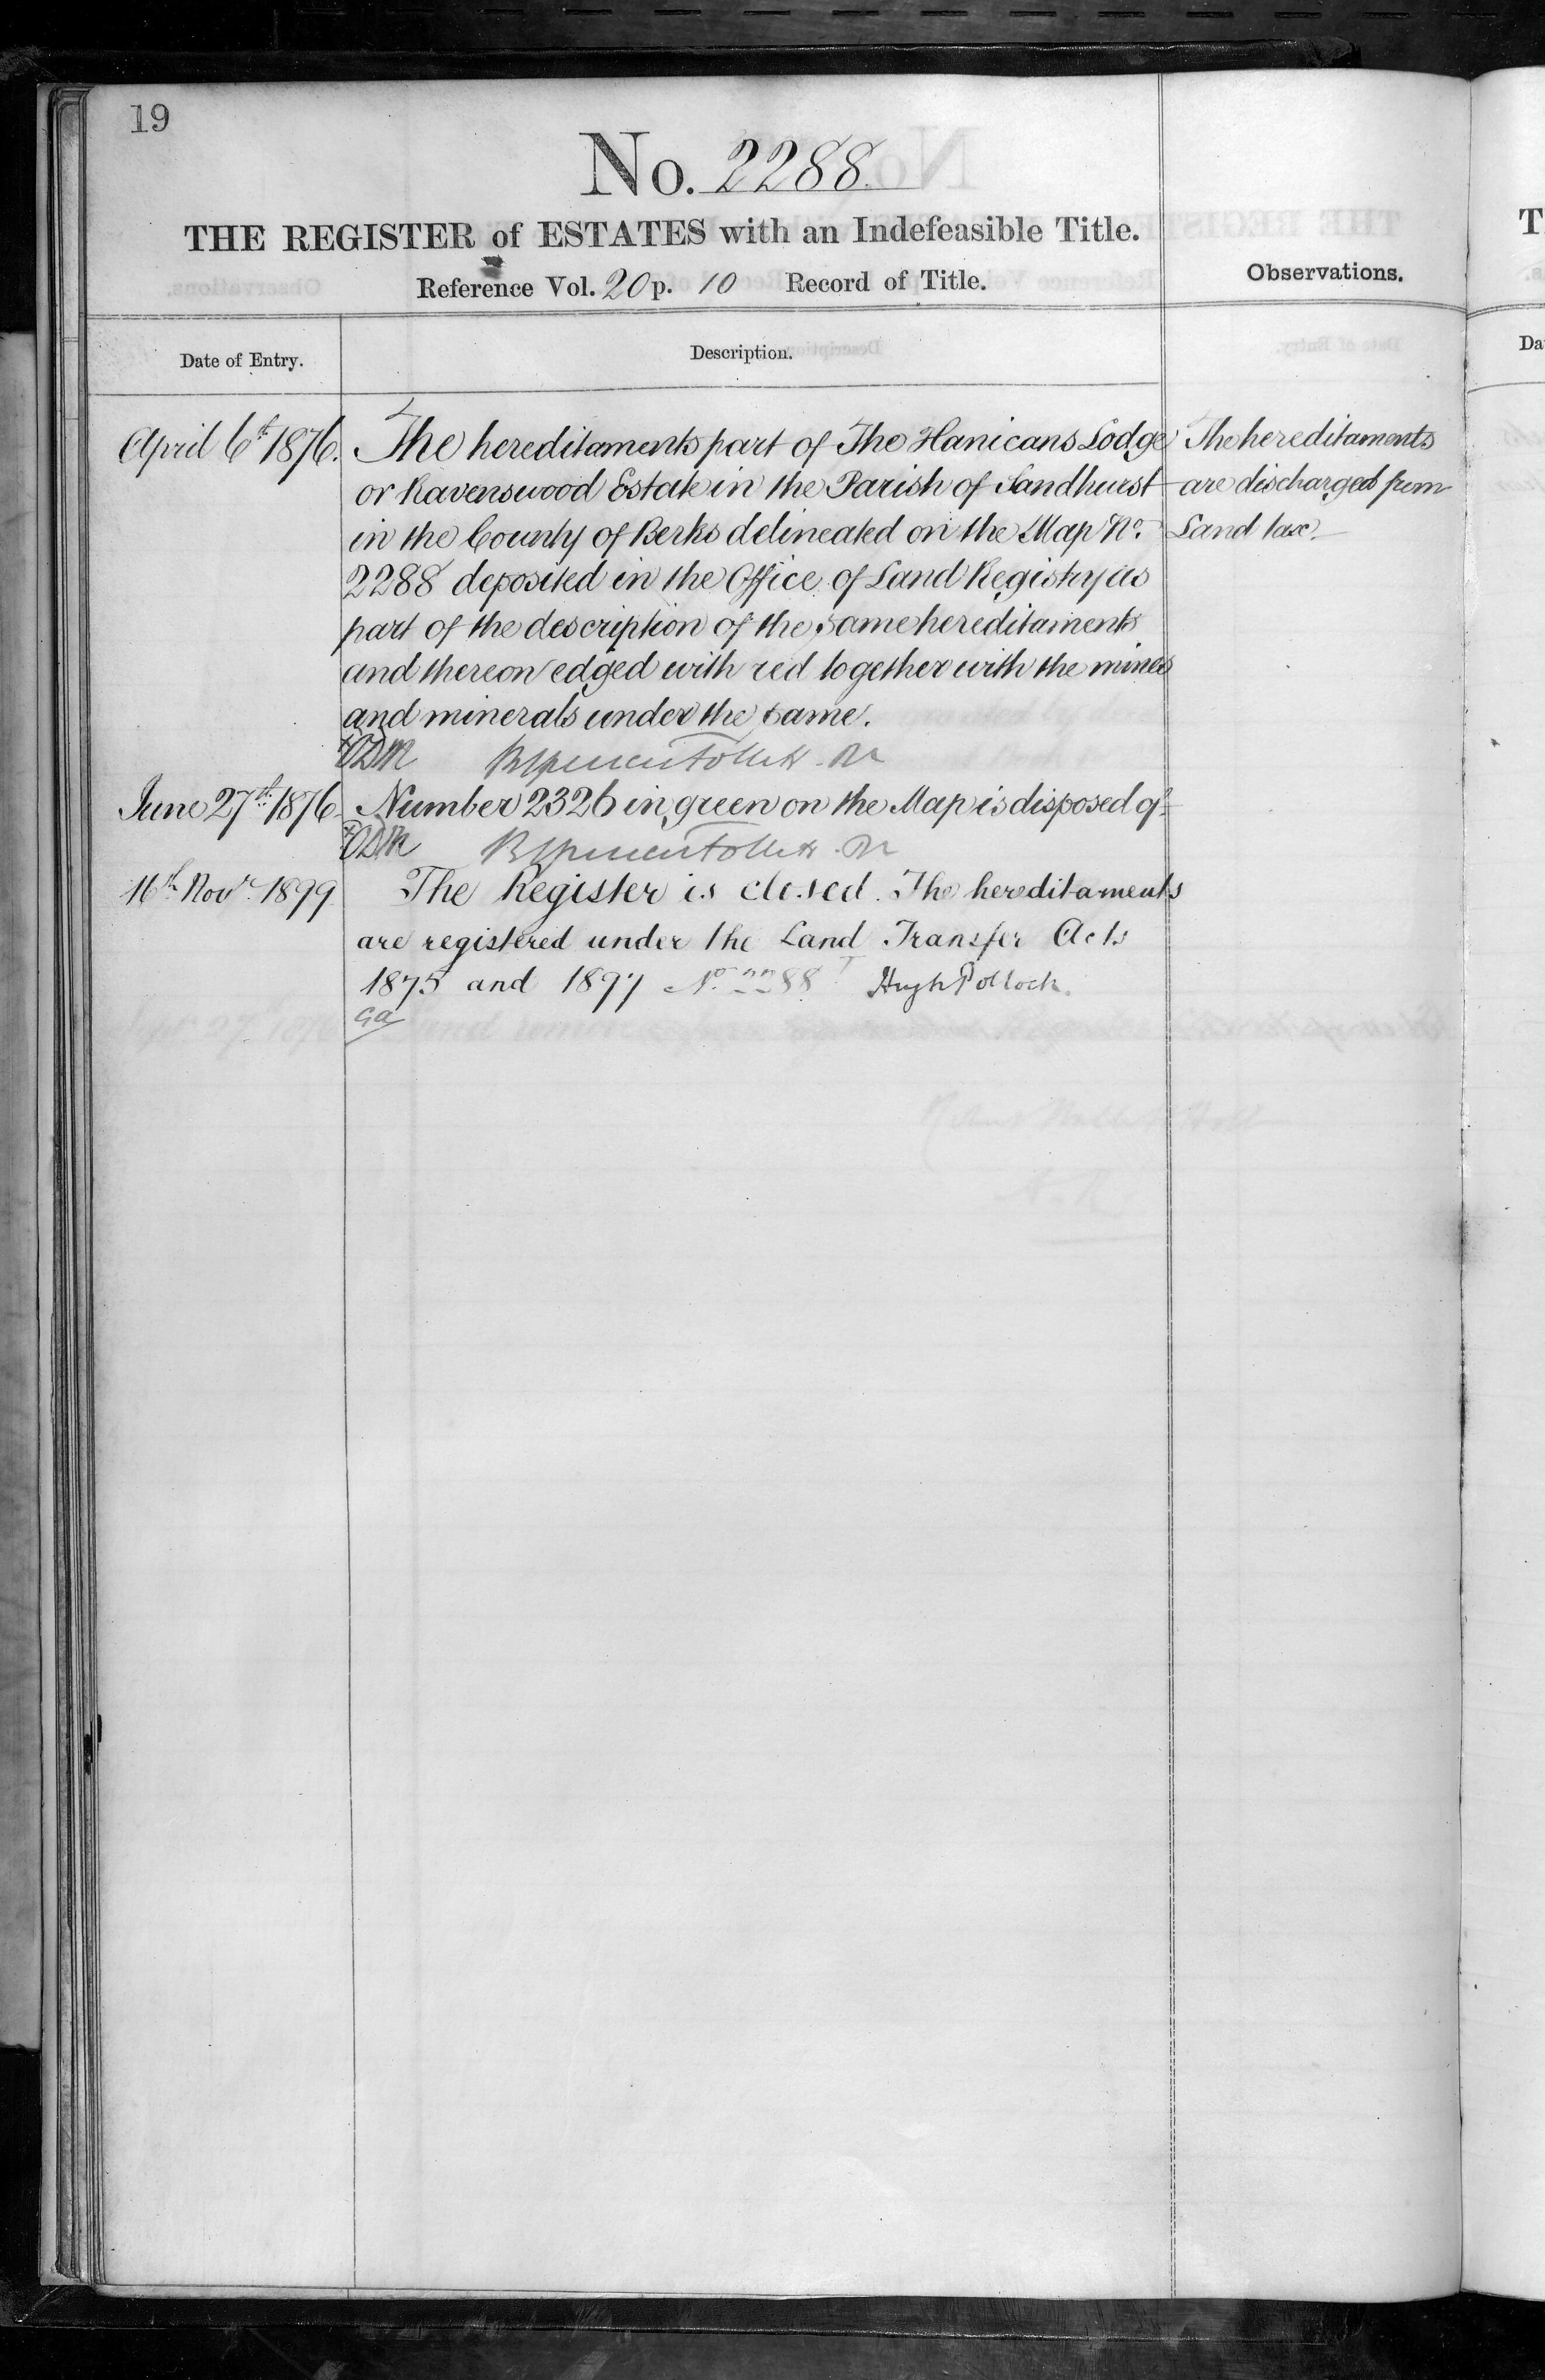 19
No. 2288
THE REGISTER of ESTATES with an Indefeasible Title.
Reference Vol. 20 p. 10 Record of Title.
Observations.
Date of Entry.
Description.
April 6th 1876.
The hereditaments part of The Hanicans Lodge
or Ravenswood Estate in the Parish of Sandhurst
in the County of Berks delineated on the Map No.
2288 deposited in the Office of Land Registry as
part of the description of the same hereditaments
and thereon edged with red together with the mines
and minerals under the same.
The hereditaments
are discharged from
Land tax.
June 27th 1876
Number 2326 in green on the Map is disposed of
16th Novr. 1899
The Register is closed. The hereditaments
are registered under the Land Transfer Acts
1875 and 1897 No. 2288 Hugh Pollock.
T
Da